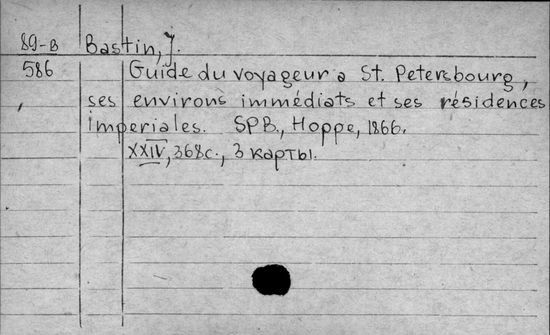 89-в Bastin, J.
586 Guide du voyageur a St. Petersbourg,
ses environs immédiats et ses résidences
imperiales. SPB., Hoppe, 1866.
XXIV, 368с., 3 карты.